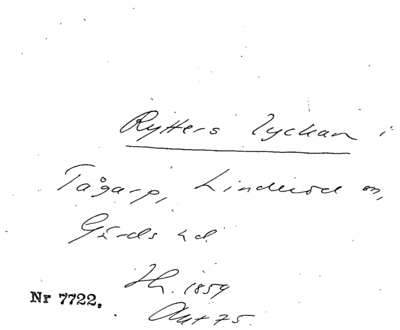 Rytters lyckan i
Tågarp, Linderöd sn,
Gärds hd.
Hh. 1859
Akt 75.
Nr 7722.